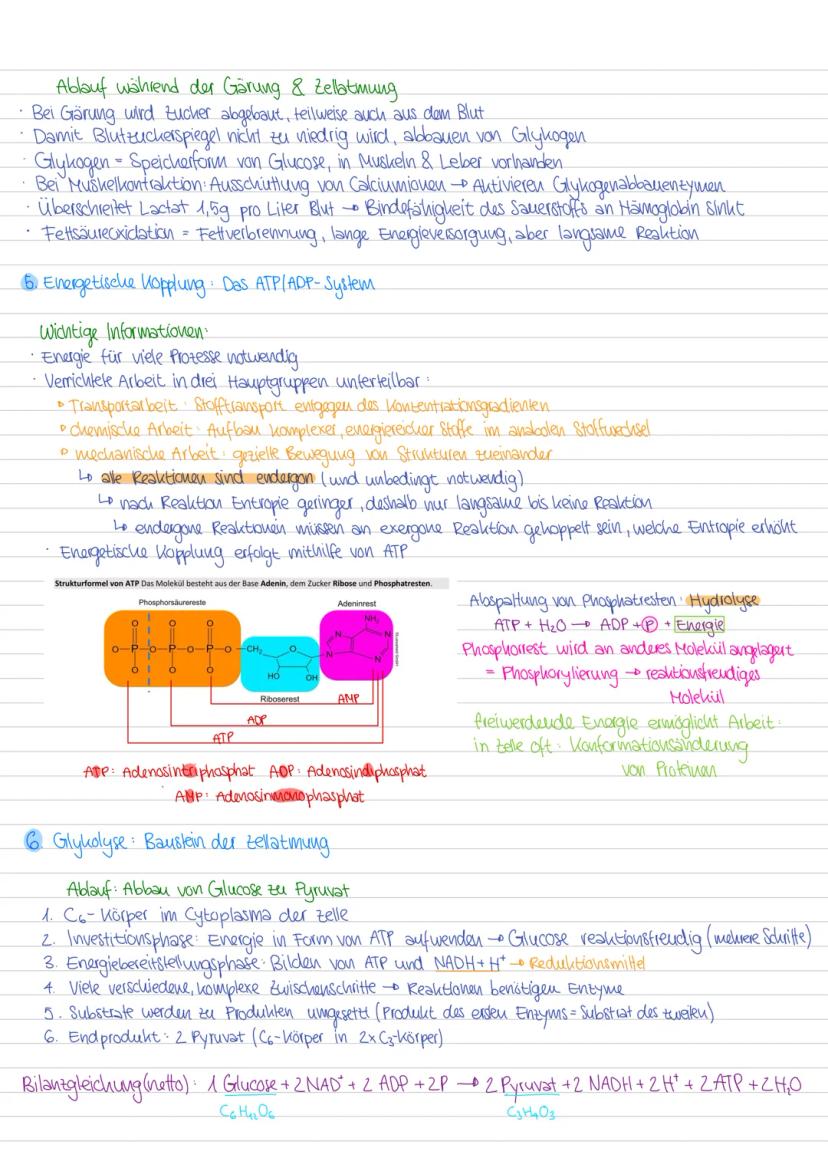 Ablauf während der Gärung & Zellatmung
· Bei Gärung wird Zucker abgebaut, teilweise auch aus dem Blut
· Damit Blutzuckerspiegel nicht zu niedrig wird, abbauen von Glykogen
· Glykogen = Speicherform von Glucose, in Muskeln & Leber vorhanden
· Bei Muskelkontraktion: Ausschüttung von Calciumionen → Aktivieren Glykogenabbauenzymen
· Überschreitet Lactat 1,5g pro Liter Blut → Bindefähigkeit des Sauerstoffs an Hämoglobin sinkt
· Fettsäureoxidation = Fettverbrennung, lange Energieversorgung, aber langsame Reaktion
5. Energetische Kopplung: Das ATP/ADP-System
Wichtige Informationen:
· Energie für viele Prozesse notwendig
· Verrichtete Arbeit in drei Hauptgruppen unterteilbar:
▹ Transportarbeit: Stofftransport entgegen des Konzentrationsgradienten
▹ chemische Arbeit: Aufbau komplexer, energiereicher Stoffe im anabolen Stoffwechsel
▹ mechanische Arbeit: gezielle Bewegung von Strukturen zueinander
↳ alle Reaktionen sind endergon (und unbedingt notwendig)
↳ nach Reaktion Entropie geringer, deshalb nur langsame bis keine Reaktion
↳ endergone Reaktionen müssen an exergone Reaktion gekoppelt sein, welche Entropie erhöht
· Energetische Kopplung erfolgt mithilfe von ATP
Strukturformel von ATP Das Molekül besteht aus der Base Adenin, dem Zucker Ribose und Phosphatresten.
Phosphorsäurereste
Adeninrest
NH₂
O O O
N N
O-P-O-P-O-P-O-CH₂ O N N
O O O
HO OH
Riboserest
AMP
ADP
ATP
ATP: Adenosintriphosphat ADP: Adenosindiphosphat
AMP: Adenosinmonophosphat
Abspaltung von Phosphatresten: Hydrolyse
ATP + H₂O → ADP + Ⓟ + Energie
Phosphorrest wird an anderes Molekül angelagert
= Phosphorylierung → reaktionsfreudiges
Molekül
freiwerdende Energie ermöglicht Arbeit:
in Zelle oft: Konformationsänderung
von Proteinen
6. Glykolyse: Baustein der Zellatmung
Ablauf: Abbau von Glucose zu Pyruvat
1. C₆-Körper im Cytoplasma der Zelle
2. Investitionsphase: Energie in Form von ATP aufwenden → Glucose reaktionsfreudig (mehrere Schritte)
3. Energiebereitstellungsphase: Bilden von ATP und NADH+H⁺ → Reduktionsmittel
4. Viele verschiedene, komplexe Zwischenschritte → Reaktionen benötigen Enzyme
5. Substrate werden zu Produkten umgesetzt (Produkt des ersten Enzyms = Substrat des zweiten)
6. Endprodukt: 2 Pyruvat (C₆-Körper in 2x C₃-Körper)
Bilanzgleichung (netto): 1 Glucose + 2 NAD⁺ + 2 ADP + 2P → 2 Pyruvat + 2 NADH + 2 H⁺ + 2 ATP + 2 H₂O
C₆H₁₂O₆ C₃H₄O₃